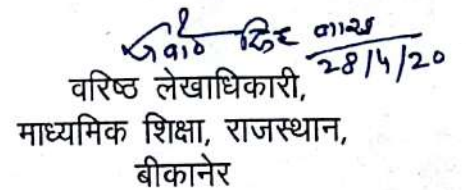 28/4/20
वरिष्ठ लेखाधिकारी,
माध्यमिक शिक्षा, राजस्थान,
बीकानेर